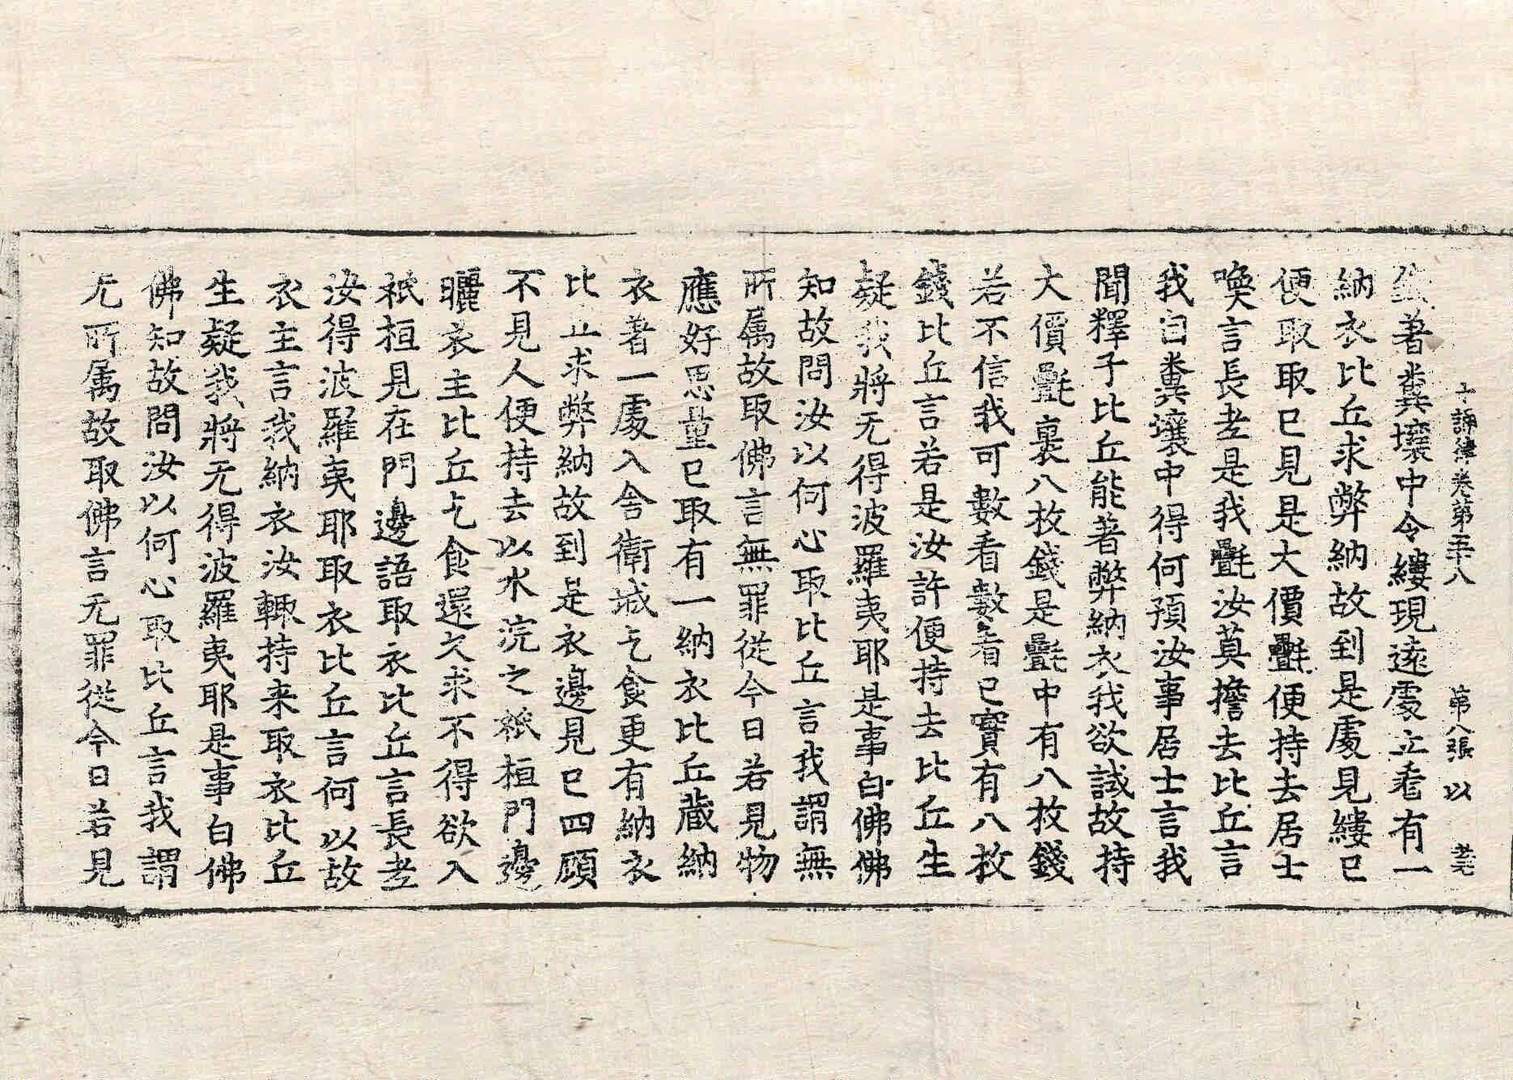 十誦律卷第五十八 第八張 以
錢著糞壤中令縷現遠處立看有一
納衣比丘求弊納故到是處見縷已
便取取已見是大價㲲便持去居士
喚言長老是我㲲汝莫擔去比丘言
我自糞壤中得何預汝事居士言我
聞釋子比丘能著弊納衣我欲試故持
大價㲲裹八枚錢是㲲中有八枚錢
若不信我可數看數看已實有八枚
錢比丘言若是汝許便持去比丘生
疑我將无得波羅夷耶是事白佛佛
知故問汝以何心取比丘言我謂無
所属故取佛言無罪從今日若見物
應好思量已取有一納衣比丘蔵納
衣著一處入舍衛城乞食更有納衣
比丘求弊納故到是衣邊見已四顧
不見人便持去以水浣之祇桓門邊
曬衣主比丘乞食還欠求不得欲入
祇桓見在門邊語取衣比丘言長老
汝得波羅夷耶取衣比丘言何以故
衣主言我納衣汝輒持来取衣比丘
生疑我將无得波羅夷耶是事白佛
佛知故問汝以何心取比丘言我謂
无所属故取佛言无罪從今日若見